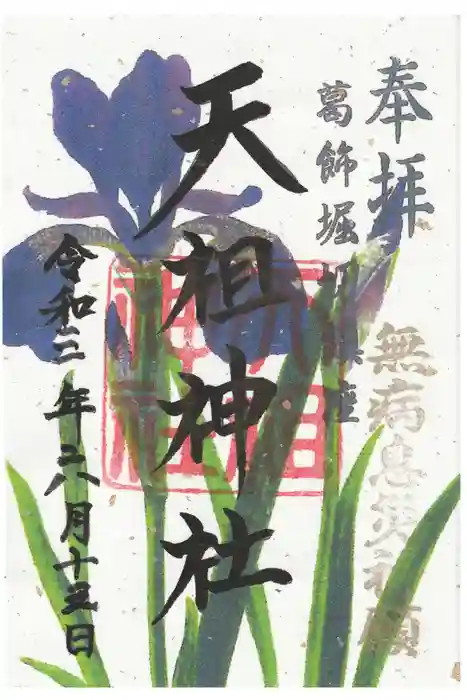 奉拝
無病息災祈願
葛飾堀切鎮座
天祖神社
令和三年六月十五日
天祖
神社